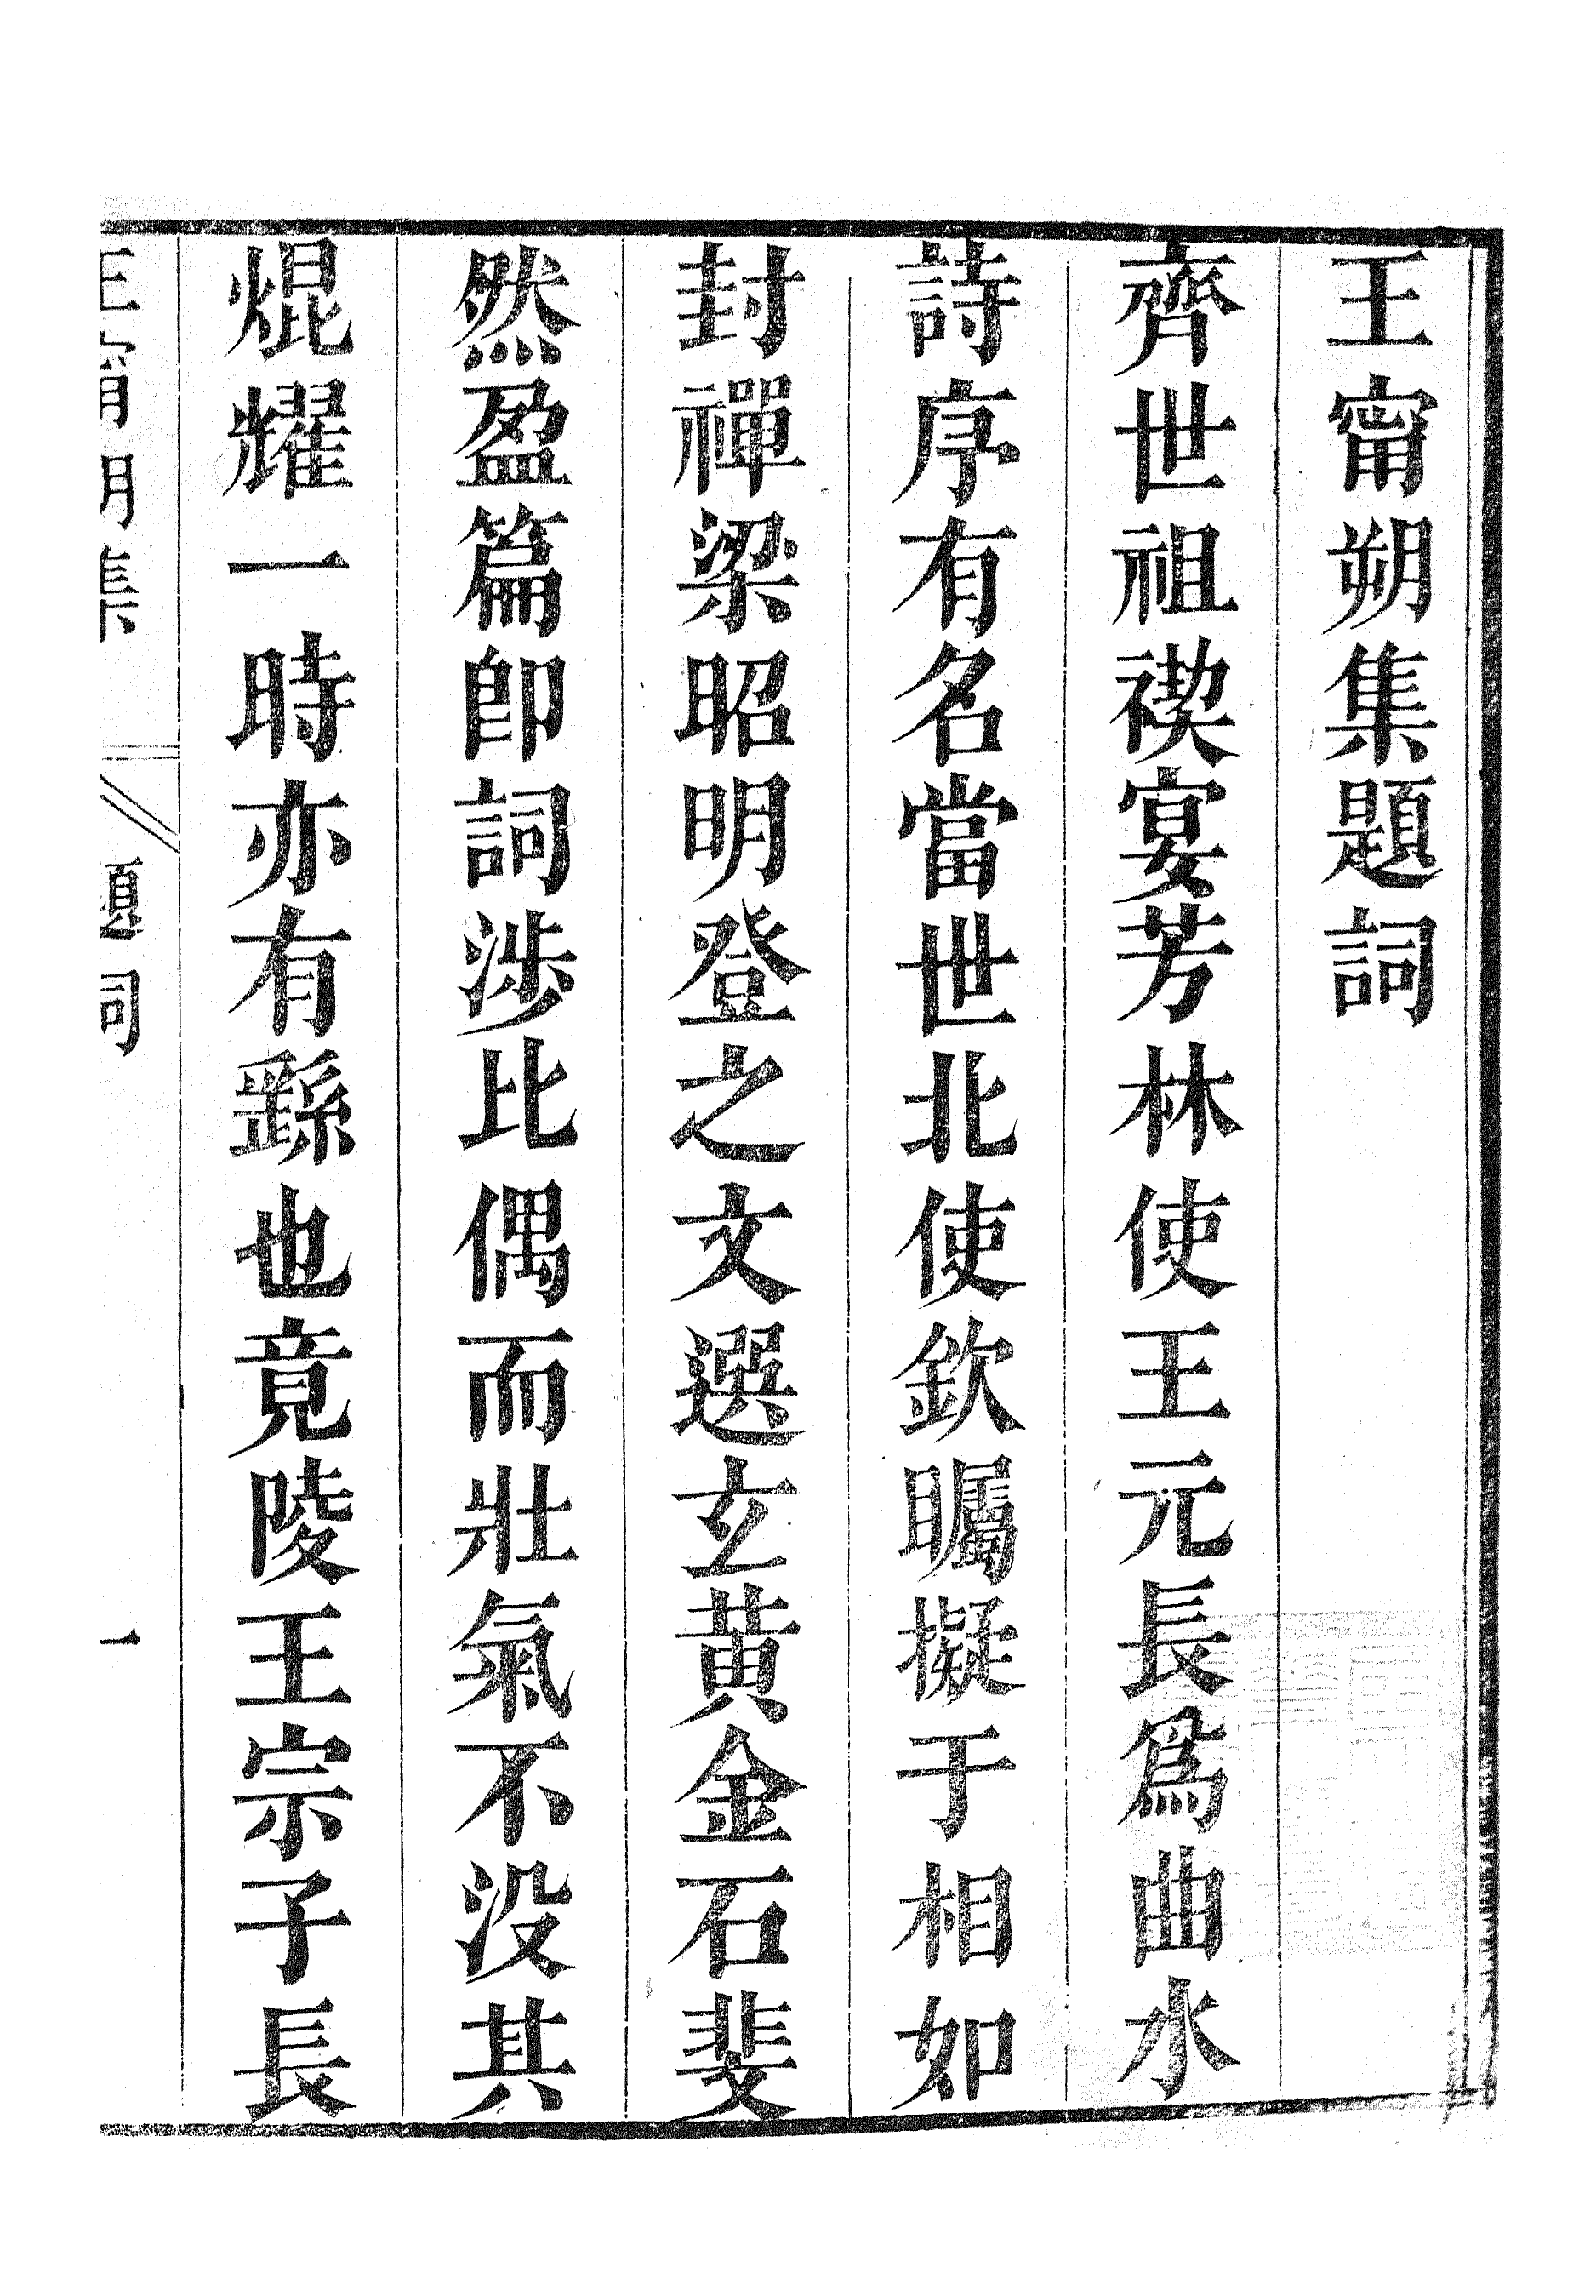 王甯朔集題詞
齊世祖禊宴芳林使王元長爲曲水
詩序有名當世北使欽矚擬于相如
封禪梁昭明登之文選玄黃金石斐
然盈篇卽詞涉比偶而壯氣不没其
焜耀一時亦有繇也竟陵王宗子長
王甯朔集 題詞 一